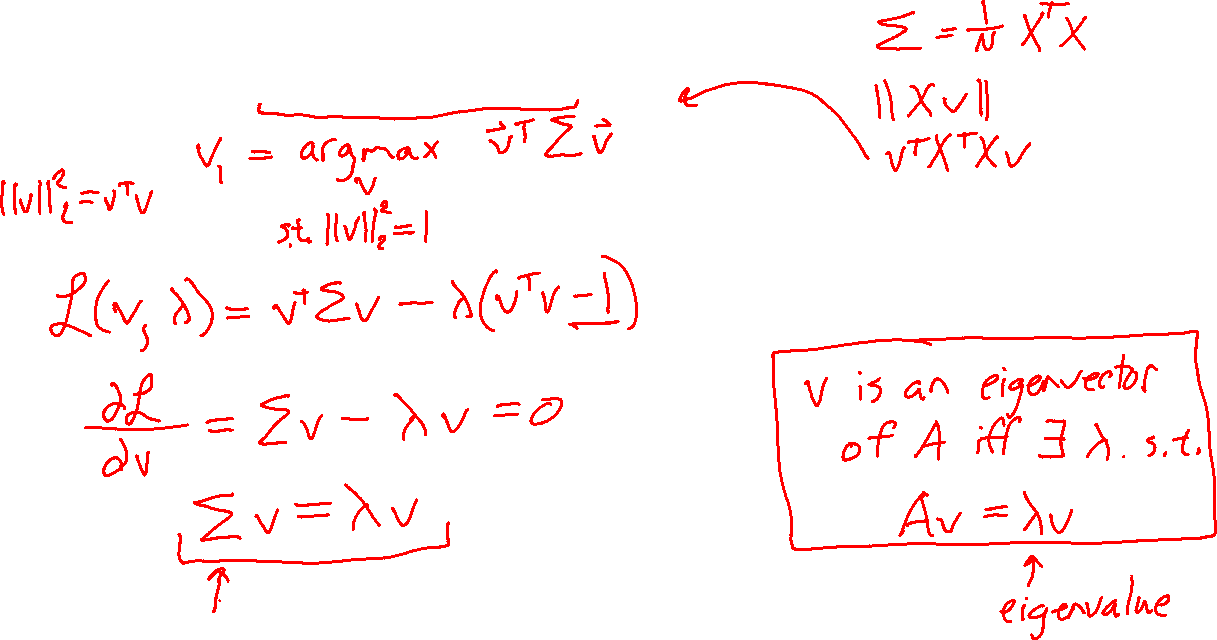 Σ = 1/N XᵀX
||Xv||
vᵀXᵀXv
v₁ = argmax v⃗ᵀ Σ v⃗
v
s.t. ||v||₂² = 1
||v||₂² = vᵀv
ℒ(v, λ) = vᵀΣv − λ(vᵀv − 1)
∂ℒ/∂v = Σv − λv = 0
Σv = λv
v is an eigenvector
of A iff ∃ λ. s.t.
Av = λv
eigenvalue